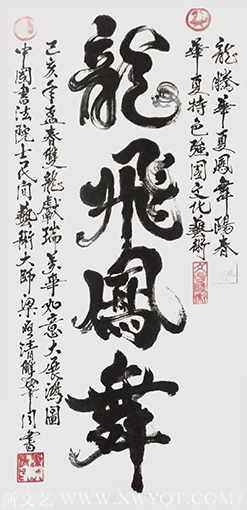 龍騰華夏鳳舞陽春
華夏特色強國文化藝術
龍飛鳳舞
己亥年孟春雙龍獻瑞如意大展鴻圖
中國書法院士民間藝術大師梁清書
新文艺 WWW.XWYQT.COM/